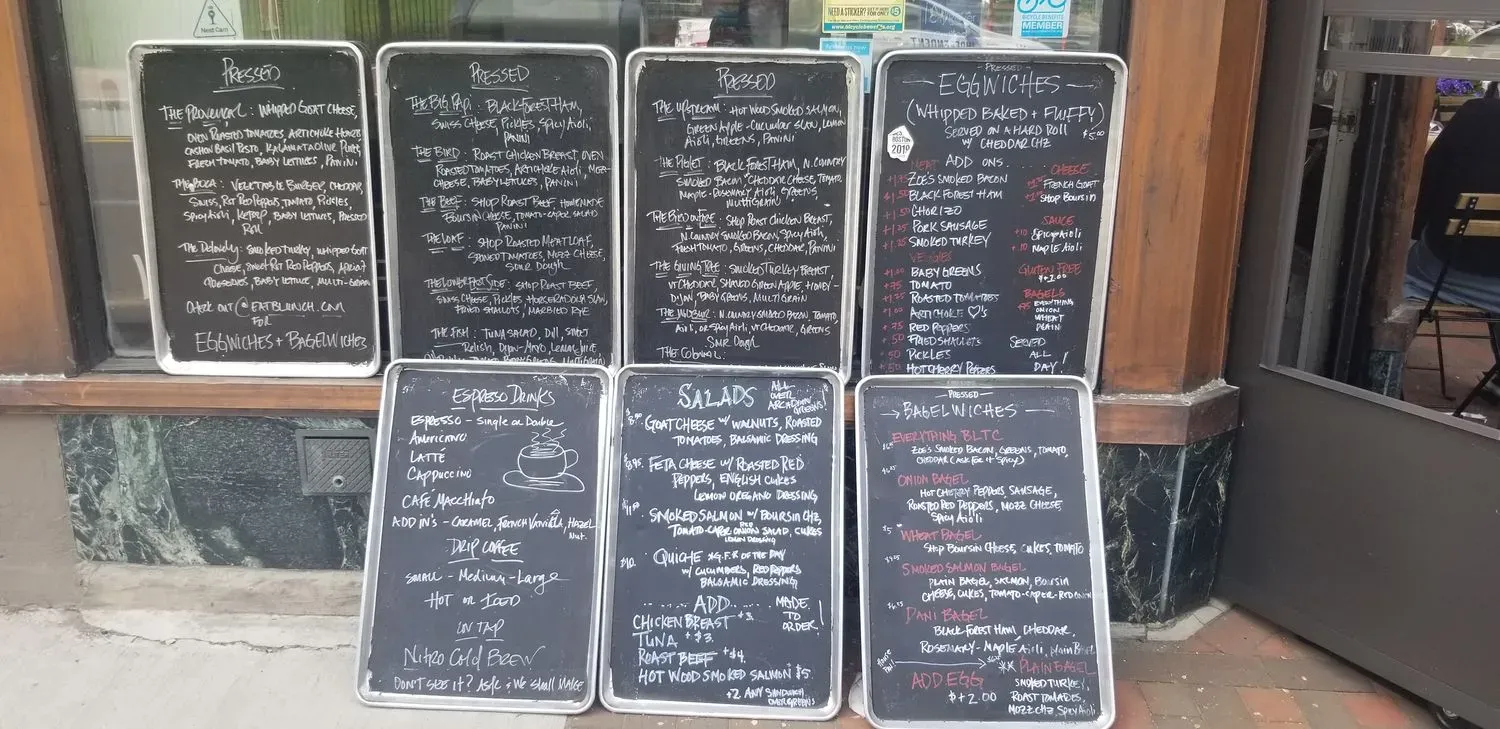 Nest Cam
NEED A STICKER?
www.bicyclebenefits.org
BICYCLE BENEFITS
MEMBER
PRESSED
THE PROVENCAL: WHIPPED GOAT CHEESE,
OVEN ROASTED TOMATOES, ARTICHOKE HEARTS
CASHEW BASIL PESTO, KALAMATA OLIVE PUREE,
FRESH TOMATO, BABY LETTUCES, PANINI
VEGETABLE BURGER, CHEDDAR,
SWISS, RST RED PEPPERS, TOMATO PICKLES,
SPICY AIOLI, KETCHUP, BABY LETTUCES, PRESSED
ROLL
THE DELANCEY: SMOKED TURKEY, WHIPPED GOAT
CHEESE, SWEET RST RED PEPPERS, APRICOT
PRESERVES, BABY LETTUCE, MULTI-GRAIN
CHECK OUT @EATBLUNCH.COM
FOR
EGGWICHES + BAGELWICHES
PRESSED
THE BIG PAPI: BLACK FOREST HAM,
SWISS CHEESE, PICKLES, SPICY AIOLI,
PANINI
THE BIRD: ROAST CHICKEN BREAST, OVEN
ROASTED TOMATOES, ARTICHOKE AIOLI, MOZZ
CHEESE, BABY LETTUCES, PANINI
THE BEEF: SHOP ROAST BEEF, HOMEMADE
BOURSIN CHEESE, TOMATO-CAPER SALAD
PANINI
THE LOAF: SHOP ROASTED MEATLOAF,
STEWED TOMATOES, MOZZ CHEESE,
SOUR DOUGH
THE LOWER EAST SIDE: SHOP ROAST BEEF,
SWISS CHEESE, PICKLES, HORSERADISH SLAW,
FRIED SHALLOTS, MARBLED RYE
THE FISH: TUNA SALAD, DILL, SWEET
RELISH, DIJON-MAYO, LEMON JUICE
PRESSED
THE UPSTREAM: HOT WOOD SMOKED SALMON,
GREEN APPLE-CUCUMBER SLAW, LEMON
AIOLI, GREENS, PANINI
THE PIGLET: BLACK FOREST HAM, N. COUNTRY
SMOKED BACON, CHEDDAR CHEESE, TOMATO,
MAPLE-ROSEMARY AIOLI, GREENS
MULTIGRAIN
THE BIRD ON FIRE: SHOP ROAST CHICKEN BREAST,
N. COUNTRY SMOKED BACON, SPICY AIOLI,
FRESH TOMATO, GREENS, CHEDDAR, PANINI
THE GIVING TREE: SMOKED TURKEY BREAST,
VT CHEDDAR, SHAVED GREEN APPLE, HONEY-
DIJON, BABY GREENS, MULTI GRAIN
N. COUNTRY SMOKED BACON, TOMATO,
AIOLI, OR SPICY AIOLI, VT CHEDDAR, GREENS
SOUR DOUGH
THE COLONEL:
PRESSED
EGGWICHES
(WHIPPED BAKED + FLUFFY)
SERVED ON A HARD ROLL $5.00
W/ CHEDDAR CHZ
BOSTON
2019
MEAT ADD ONS
ZOE'S SMOKED BACON
+1.50 BLACK FOREST HAM
+1.50 CHORIZO
+1.25 PORK SAUSAGE
+1.25 SMOKED TURKEY
VEGGIES
+1.00 BABY GREENS
+.75 TOMATO
+1.25 ROASTED TOMATOES
+1.00 ARTICHOKE ♡'S
+.75 RED PEPPERS
+.50 FRIED SHALLOTS
.50 PICKLES
HOT CHERRY PEPPERS
CHEESE
FRENCH GOAT
SHOP BOURSIN
SAUCE
SPICY AIOLI
MAPLE AIOLI
GLUTEN FREE
$+2.00
BAGELS
EVERYTHING
ONION
WHEAT
PLAIN
SERVED
ALL
DAY!
ESPRESSO DRINKS
ESPRESSO - SINGLE OR DOUBLE
AMERICANO
LATTÉ
CAPPUCCINO
CAFÉ MACCHIATO
ADD IN'S - CARAMEL, FRENCH VANILLA, HAZEL
NUT.
DRIP COFFEE
SMALL - MEDIUM - LARGE
HOT OR ICED
ON TAP
NITRO COLD BREW
DON'T SEE IT? ASK & WE SHALL MAKE
SALADS
ALL
OVER
ARCADIAN
GREENS!
GOAT CHEESE W/ WALNUTS, ROASTED
TOMATOES, BALSAMIC DRESSING
FETA CHEESE W/ ROASTED RED
PEPPERS, ENGLISH CUKES
LEMON OREGANO DRESSING
SMOKED SALMON W/ BOURSIN CHZ,
TOMATO-CAPER RED ONION SALAD, CUKES
LEMON DRESSING
$10. QUICHE *G.F.* OF THE DAY
W/ CUCUMBERS, RED PEPPERS
BALSAMIC DRESSING
ADD
MADE
TO
ORDER!
CHICKEN BREAST +3.
TUNA +$3.
ROAST BEEF +$4.
HOT WOOD SMOKED SALMON $5.
+2 ANY SANDWICH
OVER GREENS
PRESSED
BAGELWICHES
EVERYTHING BLTC
ZOE'S SMOKED BACON, GREENS, TOMATO,
CHEDDAR (ASK FOR IT SPICY)
ONION BAGEL
HOT CHERRY PEPPERS, SAUSAGE,
ROASTED RED PEPPERS, MOZZ CHEESE
SPICY AIOLI
$5 WHEAT BAGEL
SHOP BOURSIN CHEESE, CUKES, TOMATO
SMOKED SALMON BAGEL
PLAIN BAGEL, SALMON, BOURSIN
CHEESE, CUKES, TOMATO-CAPER-RED ONION
DANI BAGEL
BLACK FOREST HAM, CHEDDAR,
ROSEMARY-MAPLE AIOLI, PLAIN BAGEL
PLAIN BAGEL
SMOKED TURKEY,
ROAST TOMATOES,
MOZZ CHZ, SPICY AIOLI
ADD EGG
$+2.00